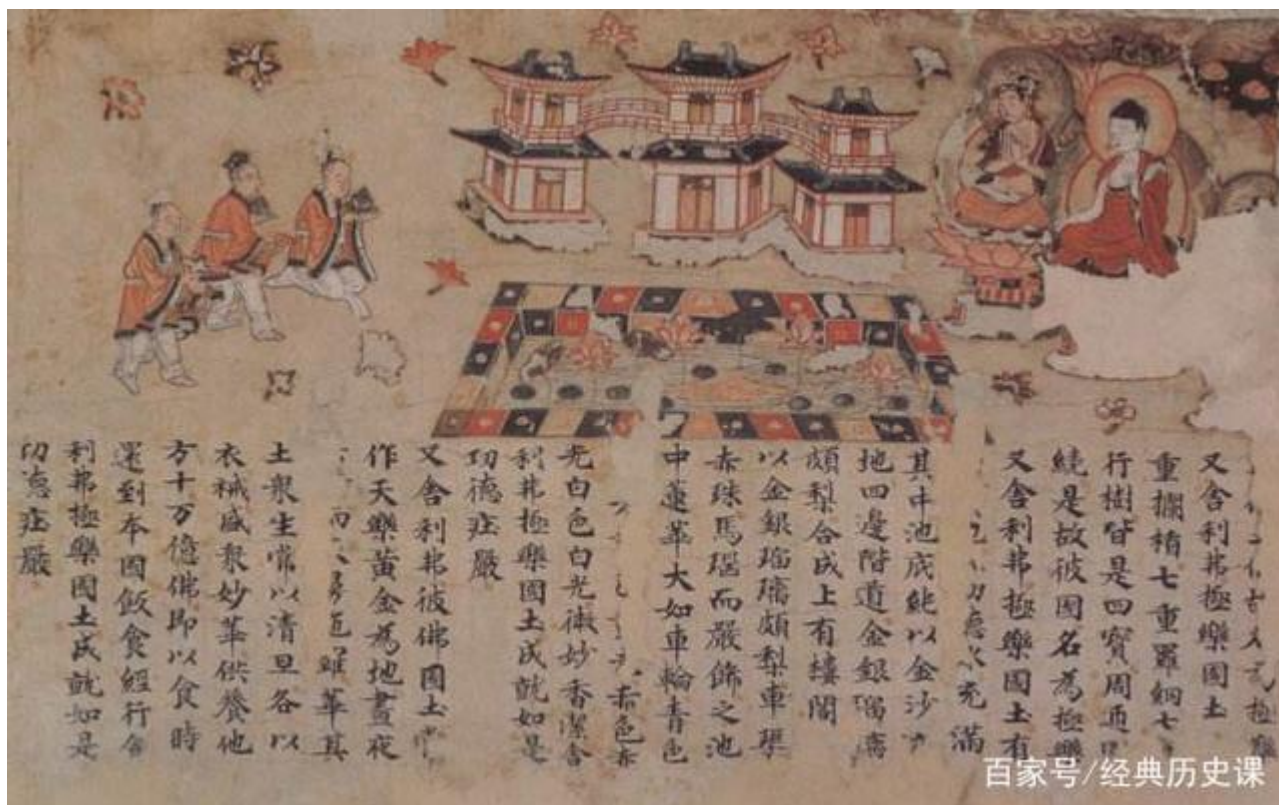 極樂
又舍利弗極樂國土
重攔楯七重羅網七
行樹皆是四寶周迊
繞是故彼國名為極樂
又舍利弗極樂國土有
充滿
其中池底純以金沙
地四邊階道金銀瑠璃
頗梨合成上有樓閣
以金銀瑠璃頗梨車璩
赤珠馬瑙而嚴飾之池
中蓮華大如車輪青色
赤色赤
光白色白光微妙香潔舍
利弗極樂國土成就如是
功德莊嚴
又舍利弗彼佛國土常
作天樂黃金為地晝夜
而羅華其
土眾生常以清旦各以
衣祴盛眾妙華供養他
方十万億佛即以食時
還到本國飯食經行舍
利弗極樂國土成就如是
功德莊嚴
百家号/经典历史课